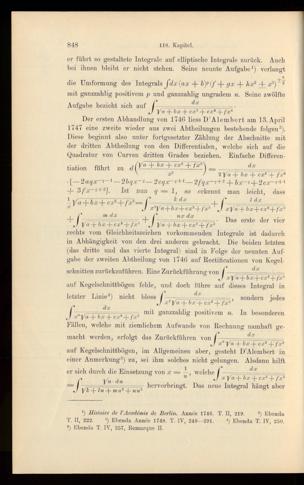 848 118. Kapitel.
er führt so gestaltete Integrale auf elliptische Integrale zurück. Auch
bei ihnen bleibt er nicht stehen. Seine neunte Aufgabe¹) verlangt
die Umformung des Integrals ∫dx (ax + b)^p (f + gx + hx² + x³)
mit ganzzahlig positivem p und ganzzahlig ungradem n. Seine zwölfte
Aufgabe bezieht sich auf ∫ dx / √a + bx + cx² + ex³ + fx⁴
Der ersten Abhandlung von 1746 liess D'Alembert am 13. April
1747 eine zweite wieder aus zwei Abtheilungen bestehende folgen²).
Diese beginnt also unter fortgesetzter Zählung der Abschnitte mit
der dritten Abtheilung von den Differentialen, welche sich auf die
Quadratur von Curven dritten Grades beziehen. Einfache Differen-
tiation führt zu d(√a + bx + cx² + fx³ / x^q) = dx / √a + bx + cx² + fx³
Ist nun q = 1, so erkennt man leicht, dass
1/x √a + bx + cx² + fx³ = ∫ k dx / x²√a + bx + cx² + fx³ + ∫ l dx / x√a + bx + cx² + fx³
+ ∫ m dx / √a + bx + cx² + fx³ + ∫ nx dx / √a + bx + cx² + fx³ Das erste der vier
rechts vom Gleichheitszeichen vorkommenden Integrale ist dadurch
in Abhängigkeit von den drei andern gebracht. Die beiden letzten
(das dritte und das vierte Integral) sind in Folge der neunten Auf-
gabe der zweiten Abtheilung von 1746 auf Rectificationen von Kegel-
schnitten zurückzuführen. Eine Zurückführung von ∫ dx / x√a + bx + cx² + fx³
auf Kegelschnittbögen fehle, und doch führe auf dieses Integral in
letzter Linie³) nicht bloss ∫ dx / x²√a + bx + cx² + fx³ sondern jedes
∫ dx / x^n √a + bx + cx² + fx³ mit ganzzahlig positivem n. In besonderen
Fällen, welche mit ziemlichem Aufwande von Rechnung namhaft ge-
macht werden, erfolgt das Zurückführen von ∫ dx / x√a + bx + cx² + fx³
auf Kegelschnittbögen, im Allgemeinen aber, gesteht D'Alembert in
einer Anmerkung⁵) zu, sei ihm solches nicht gelungen. Alsdann hilft
er sich durch die Einsetzung von x = 1/u, welche ∫ dx / x√a + bx + cx² + fx³
= ∫ √u · du / √k + lu + mu² + nu³ hervorbringt. Das neue Integral hängt aber
¹) Histoire de l'Académie de Berlin. Année 1746. T. II, 219. ²) Ebenda
T. II, 222. ³) Ebenda Année 1748. T. IV, 249—291. ⁴) Ebenda T. IV, 250.
⁵) Ebenda T. IV, 257, Remarque II.